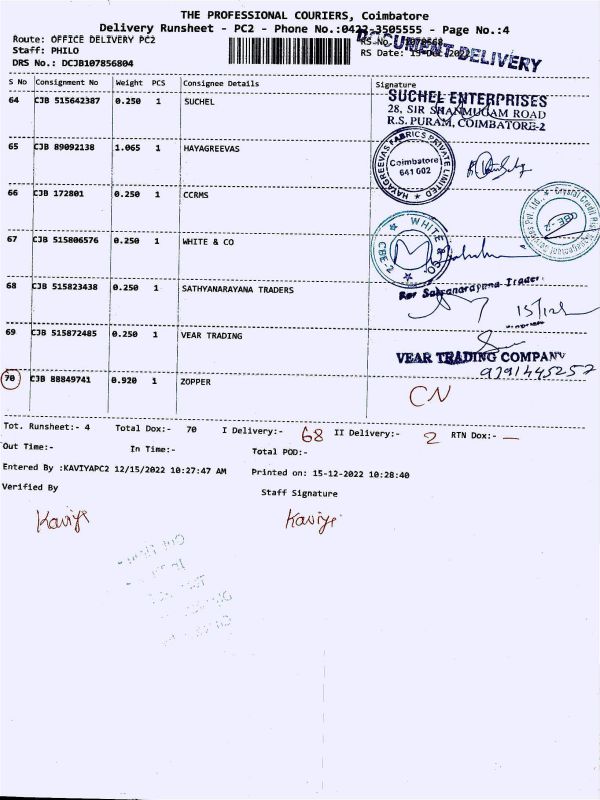 THE PROFESSIONAL COURIERS, Coimbatore
Delivery Runsheet - PC2 - Phone No.:0422-3505555 - Page No.:4
Route: OFFICE DELIVERY PC2
RS No.
DOCUMENT DELIVERY
Staff: PHILO
RS Date: 15-Dec-2022
DRS No.: DCJB107856804
S No Consignment No Weight PCS Consignee Details Signature
64 CJB 515642387 0.250 1 SUCHEL
SUCHEL ENTERPRISES
28, SIR SHANMUGAM ROAD
R.S. PURAM, COIMBATORE-2
65 CJB 89092138 1.065 1 HAYAGREEVAS
HAYAGREEVAS FABRICS PRIVATE LIMITED
Coimbatore
641 002
66 CJB 172801 0.250 1 CCRMS
Crystal Credit Risk Management Services Pvt. Ltd.
CBE - 2
67 CJB 515806576 0.250 1 WHITE & CO
WHITE & CO
CBE-2
68 CJB 515823438 0.250 1 SATHYANARAYANA TRADERS
For Sathyanarayana Traders
69 CJB 515872485 0.250 1 VEAR TRADING
VEAR TRADING COMPANY
9791445257
70 CJB 88849741 0.920 1 ZOPPER
CN
Tot. Runsheet:- 4 Total Dox:- 70 I Delivery:- 68 II Delivery:- 2 RTN Dox:- —
Out Time:- In Time:- Total POD:-
Entered By :KAVIYAPC2 12/15/2022 10:27:47 AM Printed on: 15-12-2022 10:28:40
Verified By Staff Signature
Kaviya Kaviya